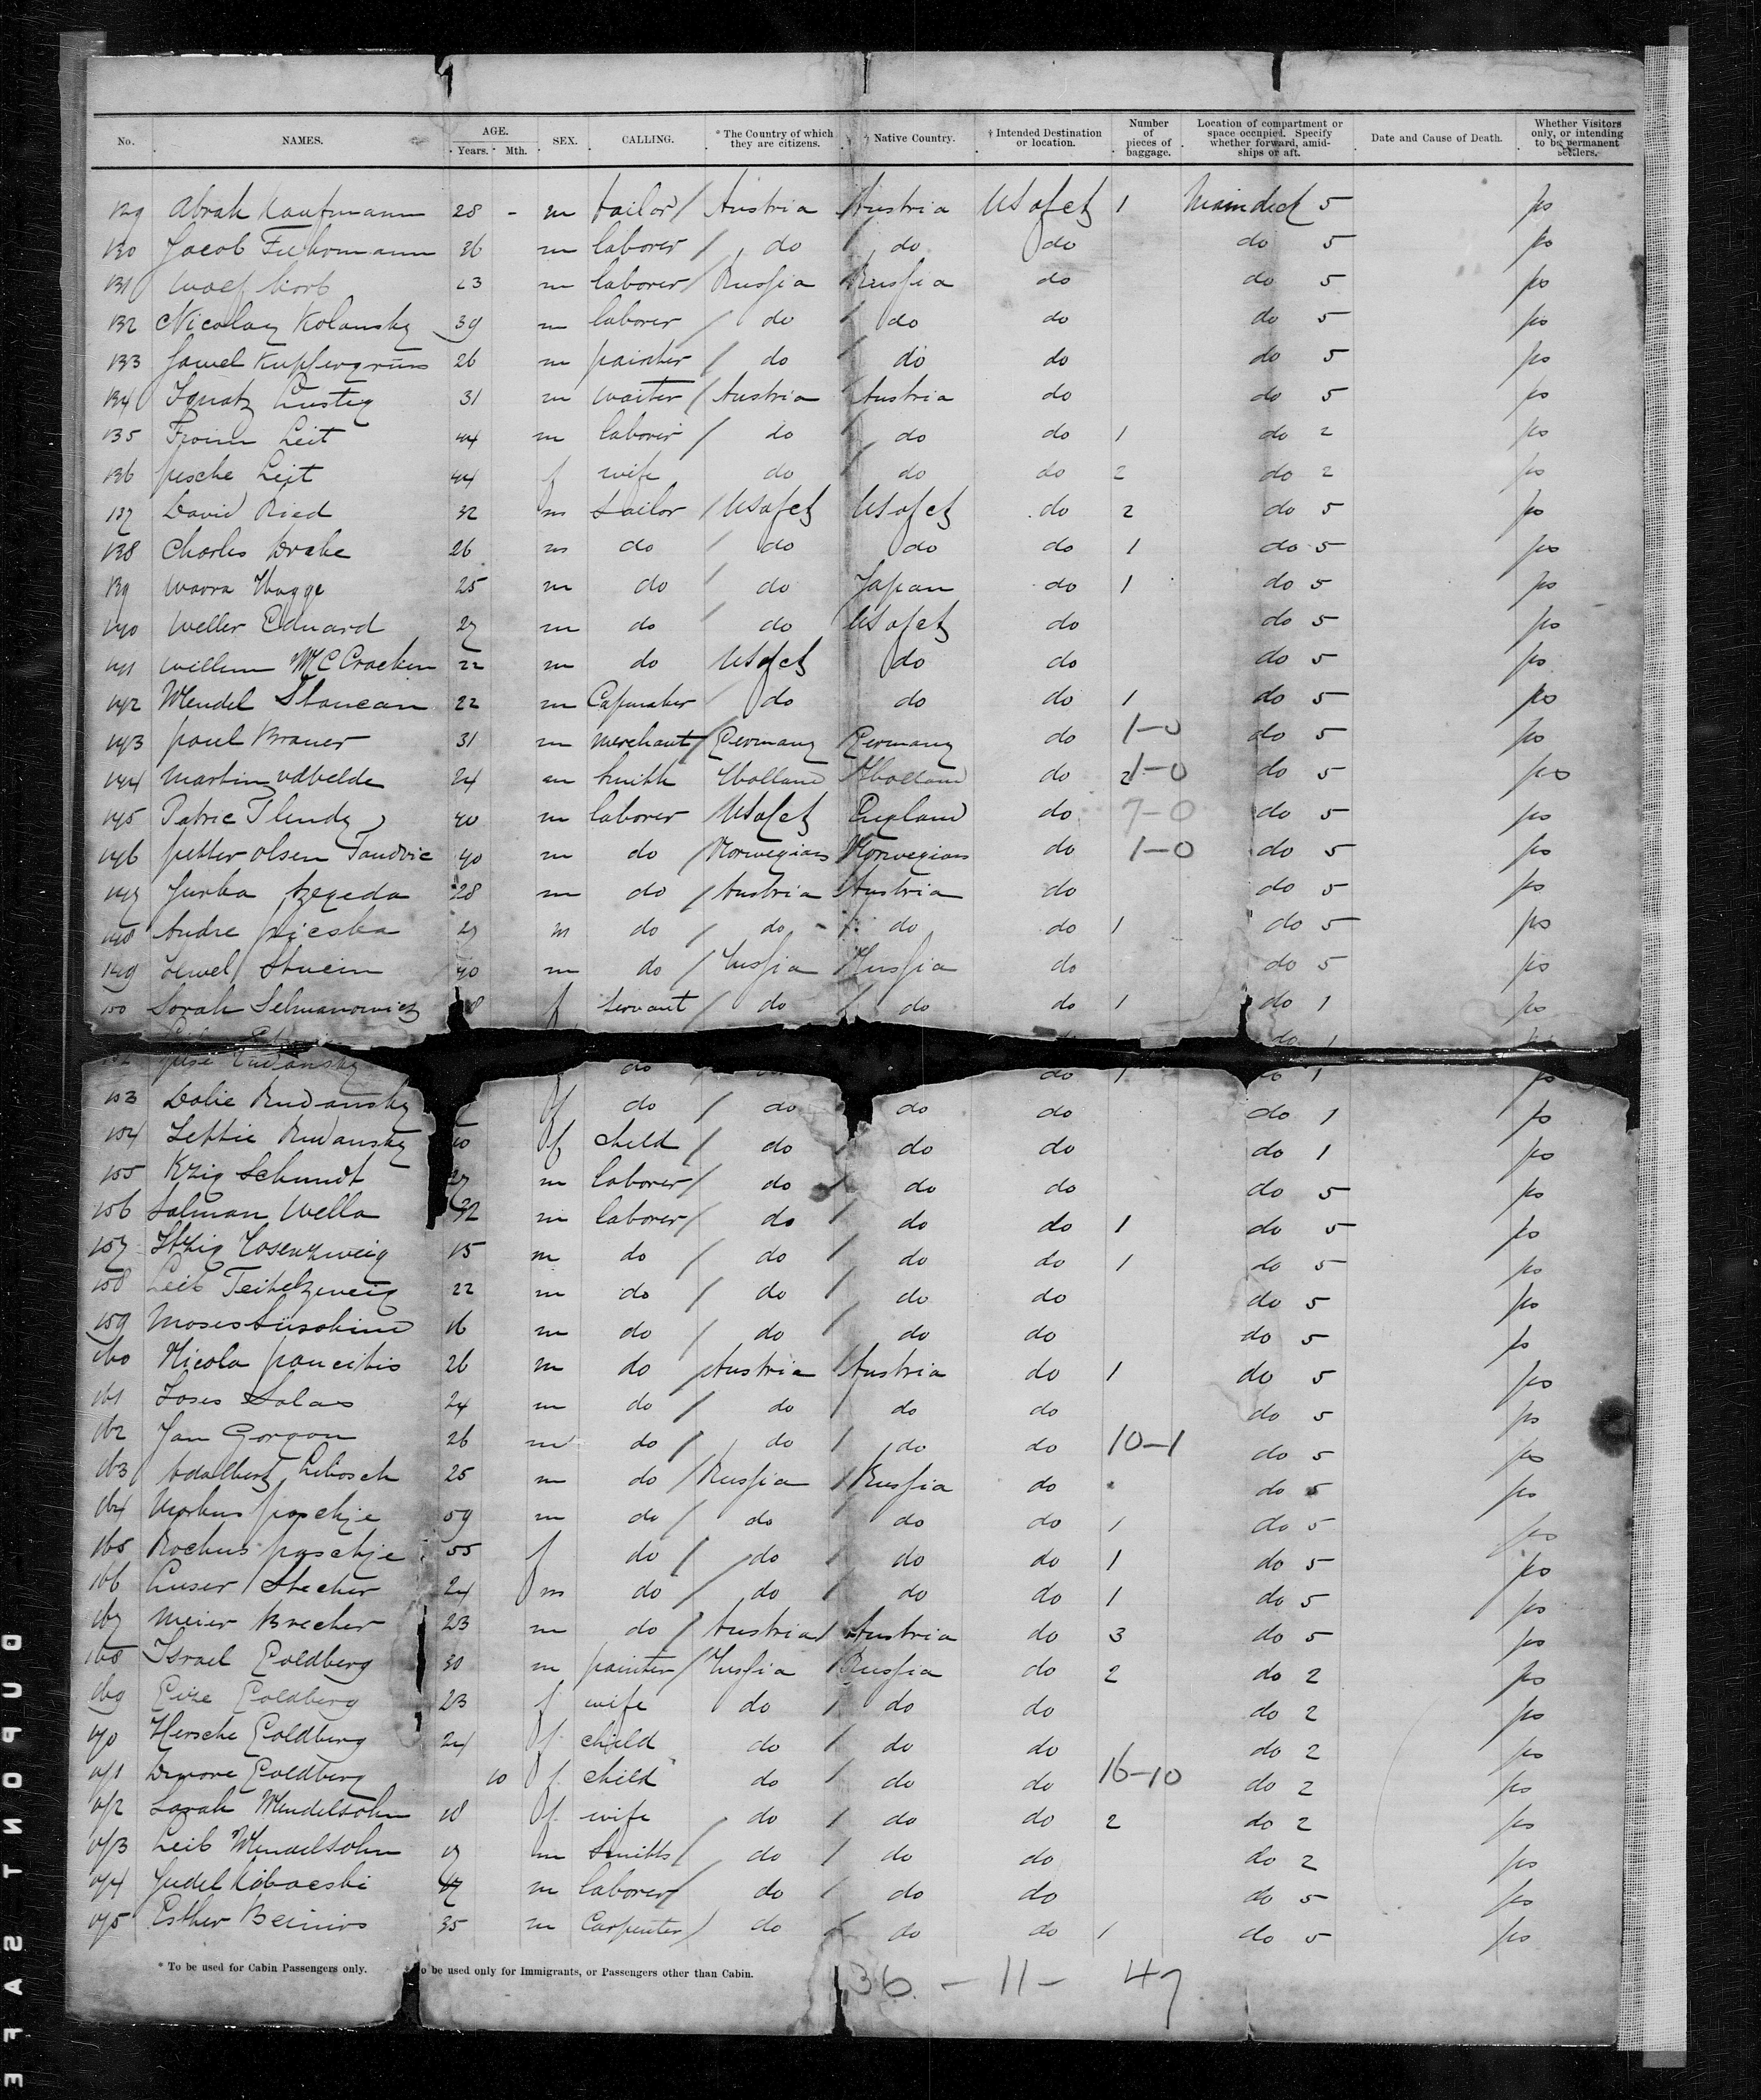 No. NAMES. AGE. Years. Mth. SEX. CALLING. * The Country of which they are citizens. † Native Country. † Intended Destination or location. Number of pieces of baggage. Location of compartment or space occupied. Specify whether forward, amidships or aft. Date and Cause of Death. Whether Visitors only, or intending to be permanent settlers.
129 Abrah Kaufmann 28 - m tailor / Austria / Austria US of et 1 Maindeck 5 ps
130 Jacob 26 m laborer / do / do do do 5 ps
131 23 m laborer / Russia Russia do do 5 ps
132 Nicolay Kolansky 39 m laborer / do / do do do 5 ps
133 Kupfergrün 26 m painter / do / do do do 5 ps
134 Ignatz Lustig 31 m waiter / Austria Austria do do 5 ps
135 Froim Leit 44 m laborer / do / do do 1 do 2 ps
136 pesche Leit 44 f wife do / do do 2 do 2 ps
137 David Ried 32 m Sailor / US of et US of et do 2 do 5 ps
138 Charles Drake 26 m do / do do do 1 do 5 ps
139 25 m do / do Japan do 1 do 5 ps
140 Weller Eduard 27 m do / do US of et do do 5 ps
141 willem McCracken 22 m do US of et do do do 5 ps
142 Mendel 22 m Capmaker / do do do 1 do 5 ps
143 paul Brauer 31 m merchant / Germany Germany do 1-0 do 5 ps
144 Martin vdvelde 24 m Smith Holland Holland do 1-0 do 5 ps
145 Patric 40 m laborer US of et England do 7-0 do 5 ps
146 petter olsen Tandvic 40 m do / Norwegians Norwegians do 1-0 do 5 ps
147 Jurka Szegeda 28 m do / Austria Austria do do 5 ps
148 Andre 27 m do / do - / do do 1 do 5 ps
149 40 m do / Russia Russia do do 5 ps
150 Sorah Selmanowicz 8 f Servant / do / do do 1 do 1 ps
do 1
152 do do 1 do 1 ps
153 Dobie Rudansky f do / do do do do 1 ps
154 Rudansky 10 f child / do / do do do 1 ps
155 Schmidt 27 m laborer / do / do do do 5 ps
156 Salman Wella 32 m laborer / do / do do 1 do 5 ps
157 Itzig Rosenzweig 15 m do / do / do do 1 do 5 ps
158 Leib Teitelzweig 22 m do / do / do do do 5 ps
159 Moses 16 m do / do / do do do 5 ps
160 Nicola 26 m do / Austria / Austria do 1 do 5 ps
161 24 m do / do / do do do 5 ps
162 Jan Gorgon 26 m do / do / do do 10-1 do 5 ps
163 Adalbert 25 m do / Russia / Russia do do 5 ps
164 Markus paschje 59 m do / do do do 1 do 5 ps
165 Rochus paschje 55 f do / do / do do 1 do 5 ps
166 Stecher 24 m do / do / do do 1 do 5 ps
167 Meier Brecher 23 m do / Austria / Austria do 3 do 5 ps
168 Israel Goldberg 30 m painter / Russia / Russia do 2 do 2 ps
169 Goldberg 23 f wife do / do do do 2 ps
170 Hersche Goldberg 24 f child do / do do do 2 ps
171 Goldberg 10 f child do / do do 16-10 do 2 ps
172 Sarah Mendelsohn 18 f wife do / do do 2 do 2 ps
173 Leib Mendelsohn 19 m Smith / do / do do do 2 ps
174 Judel 17 m laborer / do / do do do 5 ps
175 Esther 35 m Carpenter / do / do do 1 do 5 ps
* To be used for Cabin Passengers only. o be used only for Immigrants, or Passengers other than Cabin.
36. - 11 - 47
DUPONT SAFE